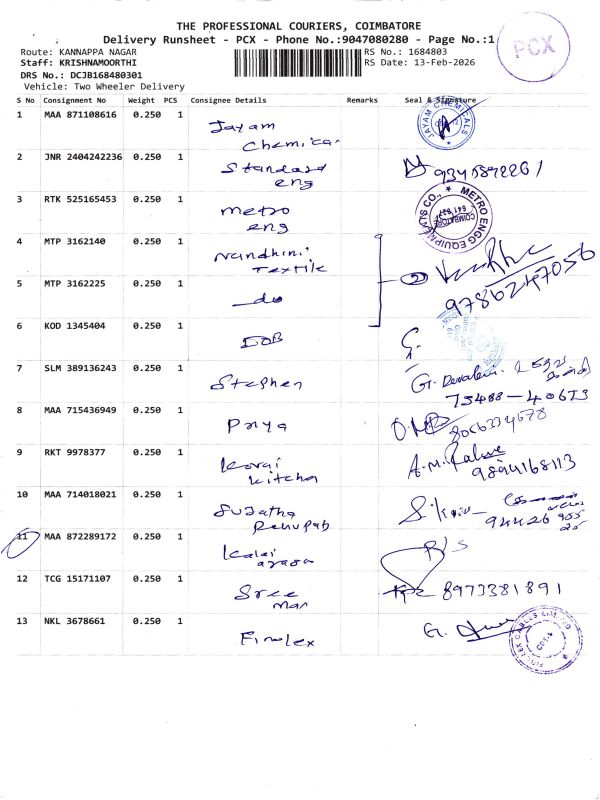 THE PROFESSIONAL COURIERS, COIMBATORE
Delivery Runsheet - PCX - Phone No.:9047080280 - Page No.:1
PCX
Route: KANNAPPA NAGAR
RS No.: 1684803
Staff: KRISHNAMOORTHI
RS Date: 13-Feb-2026
DRS No.: DCJB168480301
Vehicle: Two Wheeler Delivery
S No Consignment No Weight PCS Consignee Details Remarks Seal & Signature
1 MAA 871108616 0.250 1 Jayam
Chemical
JAYAM CHEMICALS
2 JNR 2404242236 0.250 1 Standard
eng
3 RTK 525165453 0.250 1 metro
eng
METRO ENGG EQUIPMENTS CO.,
COIMBATORE
4 MTP 3162140 0.250 1 Nandhini
Textile
5 MTP 3162225 0.250 1 do
2
9786247056
6 KOD 1345404 0.250 1 IOB
7 SLM 389136243 0.250 1 Stephen
8 MAA 715436949 0.250 1 Priya
9 RKT 9978377 0.250 1 Kovai
kitchen
9894168113
10 MAA 714018021 0.250 1 Sujatha
11 MAA 872289172 0.250 1 Kalai
12 TCG 15171107 0.250 1 Sree
mar
8973381891
13 NKL 3678661 0.250 1 Finolex
G.